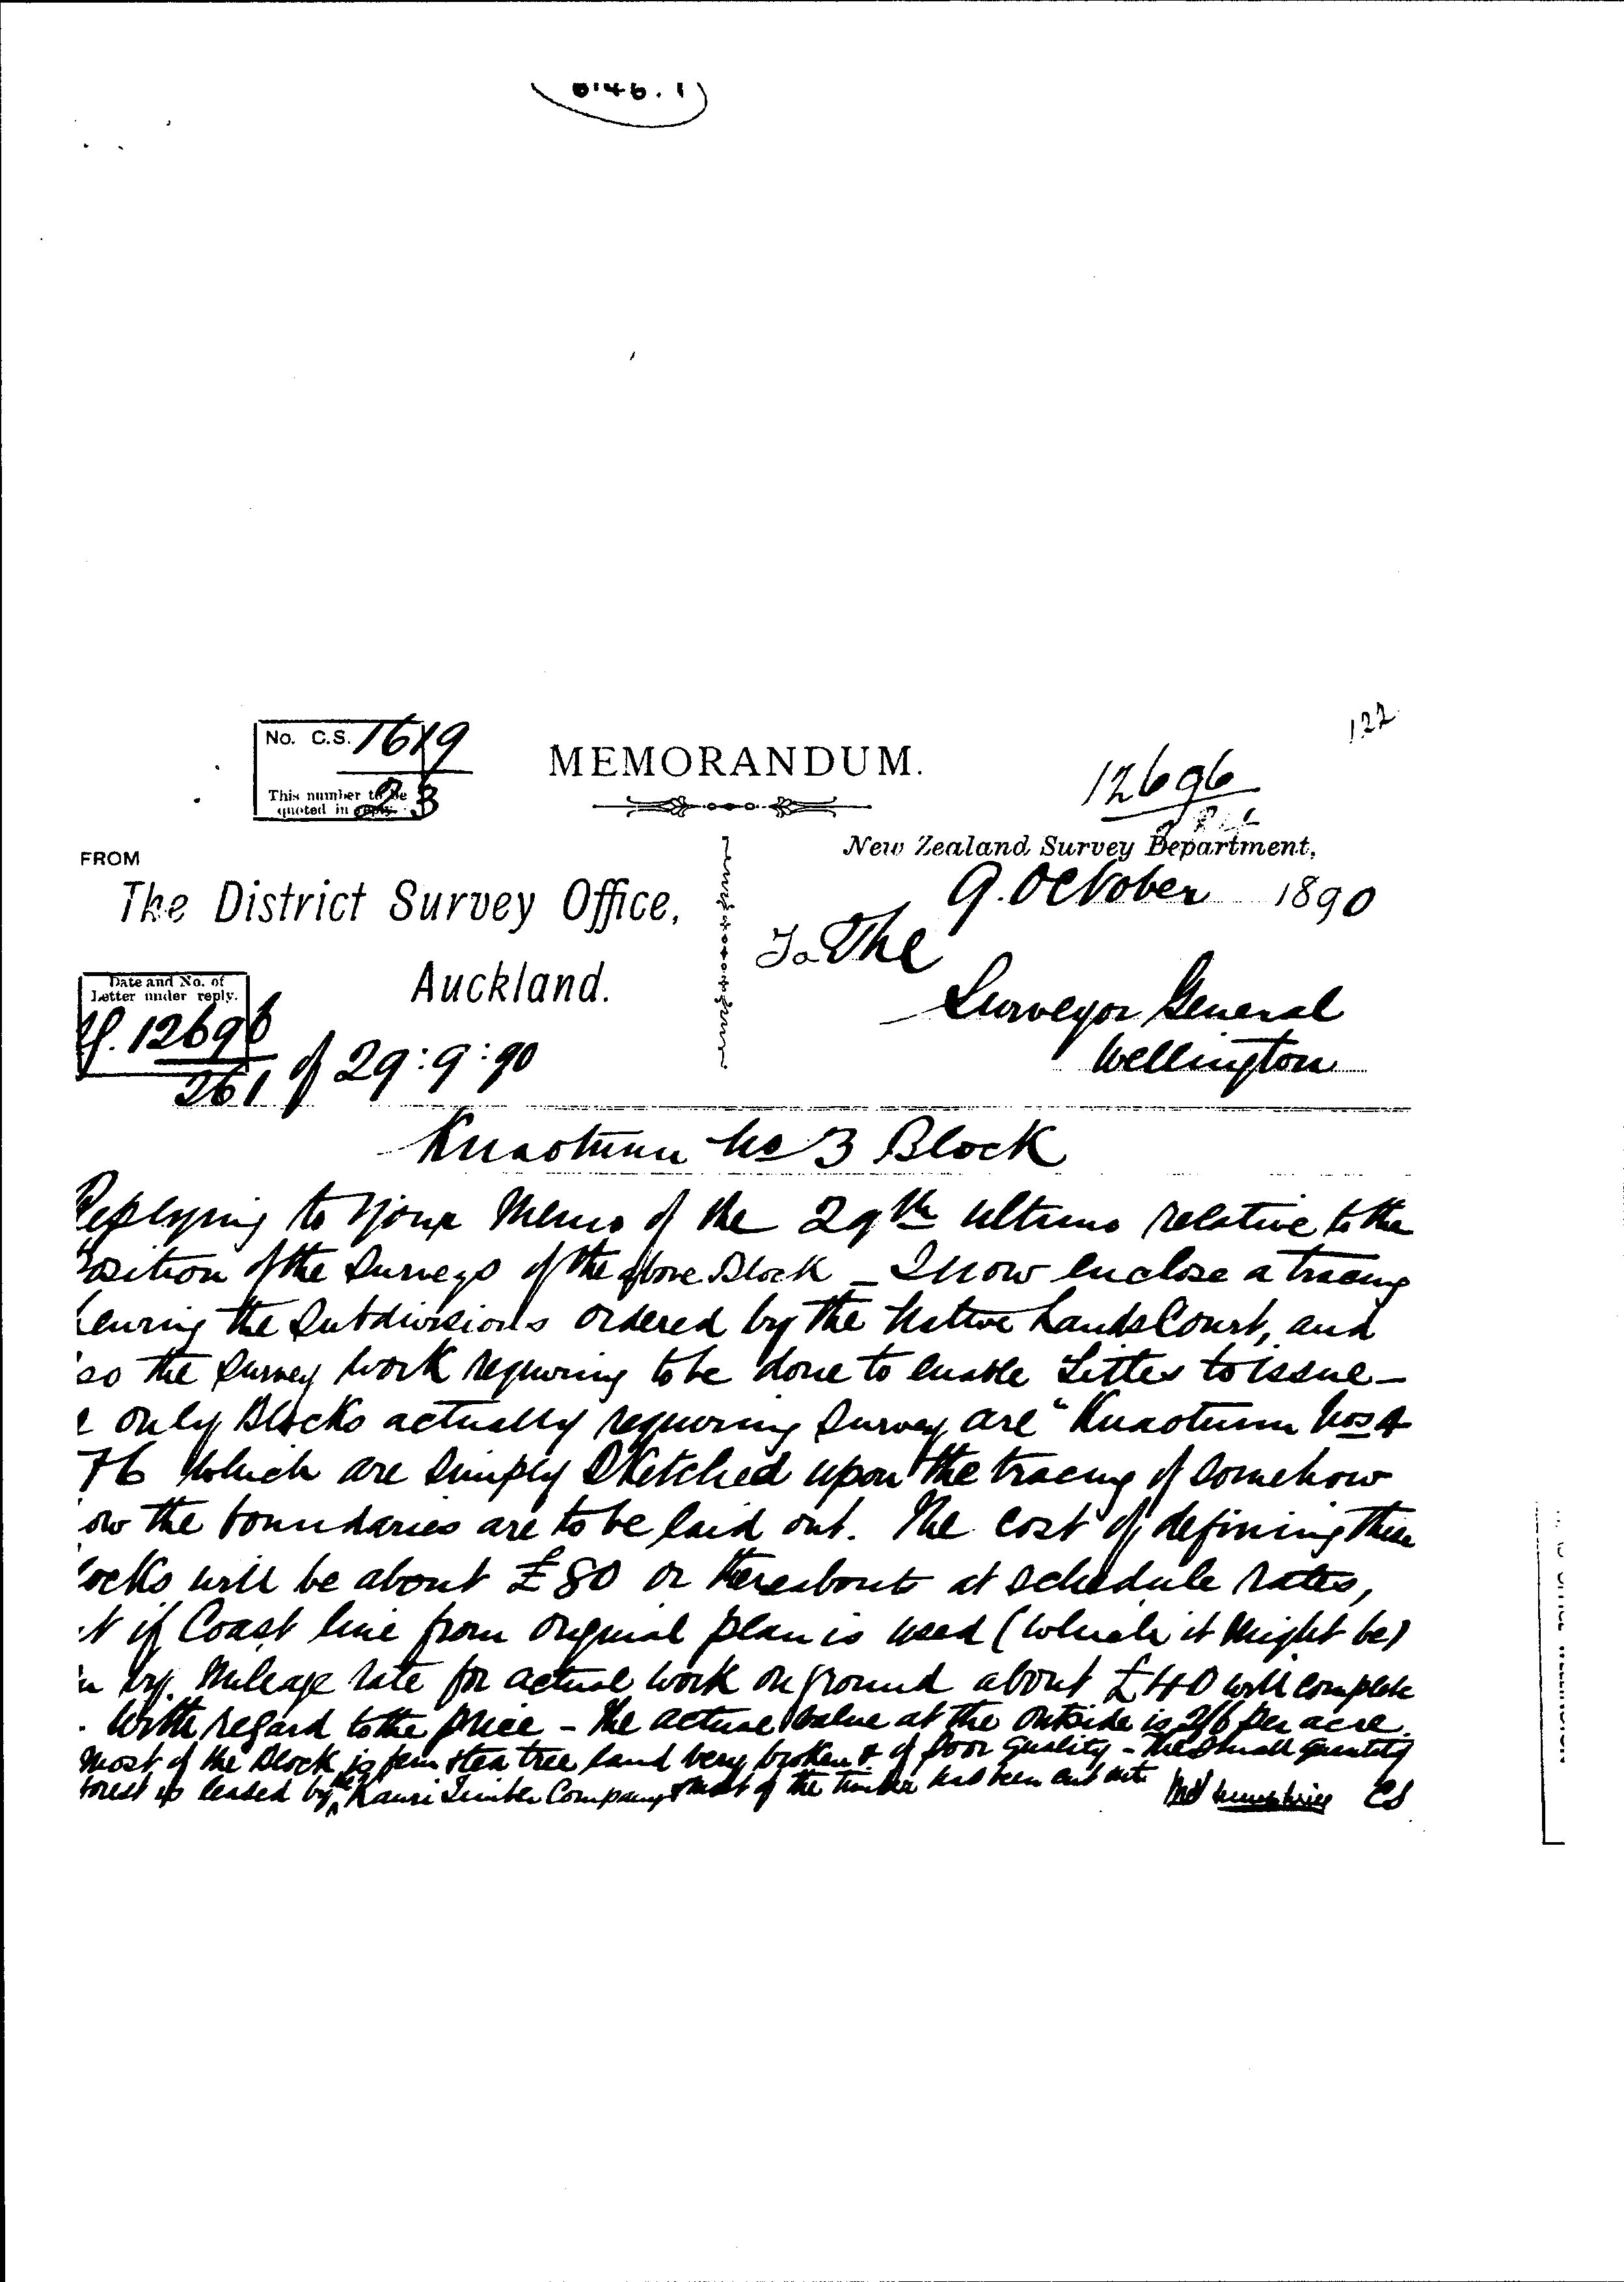 122
No. C.S. 1619
This number to be
quoted in reply.
23
MEMORANDUM.
12696
New Zealand Survey Department,
9. October 1890
FROM
The District Survey Office,
Auckland.
To The
Surveyor General
Wellington
Date and No. of
Letter under reply.
12696
261 of 29:9:90
Kuaotunu No 3 Block
Replying to your Memo of the 29th ultimo relative to the
osition of the Surveys of the above Block – I now enclose a tracing
ewing the Subdivisions ordered by the Native Lands Court, and
so the Survey work requiring to be done to enable Titles to issue –
e only Blocks actually requiring Survey are "Kuaotunu Nos A
7B which are simply Sketched upon the tracing to somehow
ow the boundaries are to be laid out. The cost of defining these
locks will be about £80 or thereabouts at schedule rates,
t if Coast line from original plan is used (which it might be)
by. Mileage rate for actual work on ground about £40 will complete
. With regard to the price – the actual value at the outside is 2/6 per acre.
Most of the Block is fern & tea tree land very broken & of poor quality – The small quantity
forest is leased by the Kauri Timber Company & most of the timber has been cut out
Humphries CS